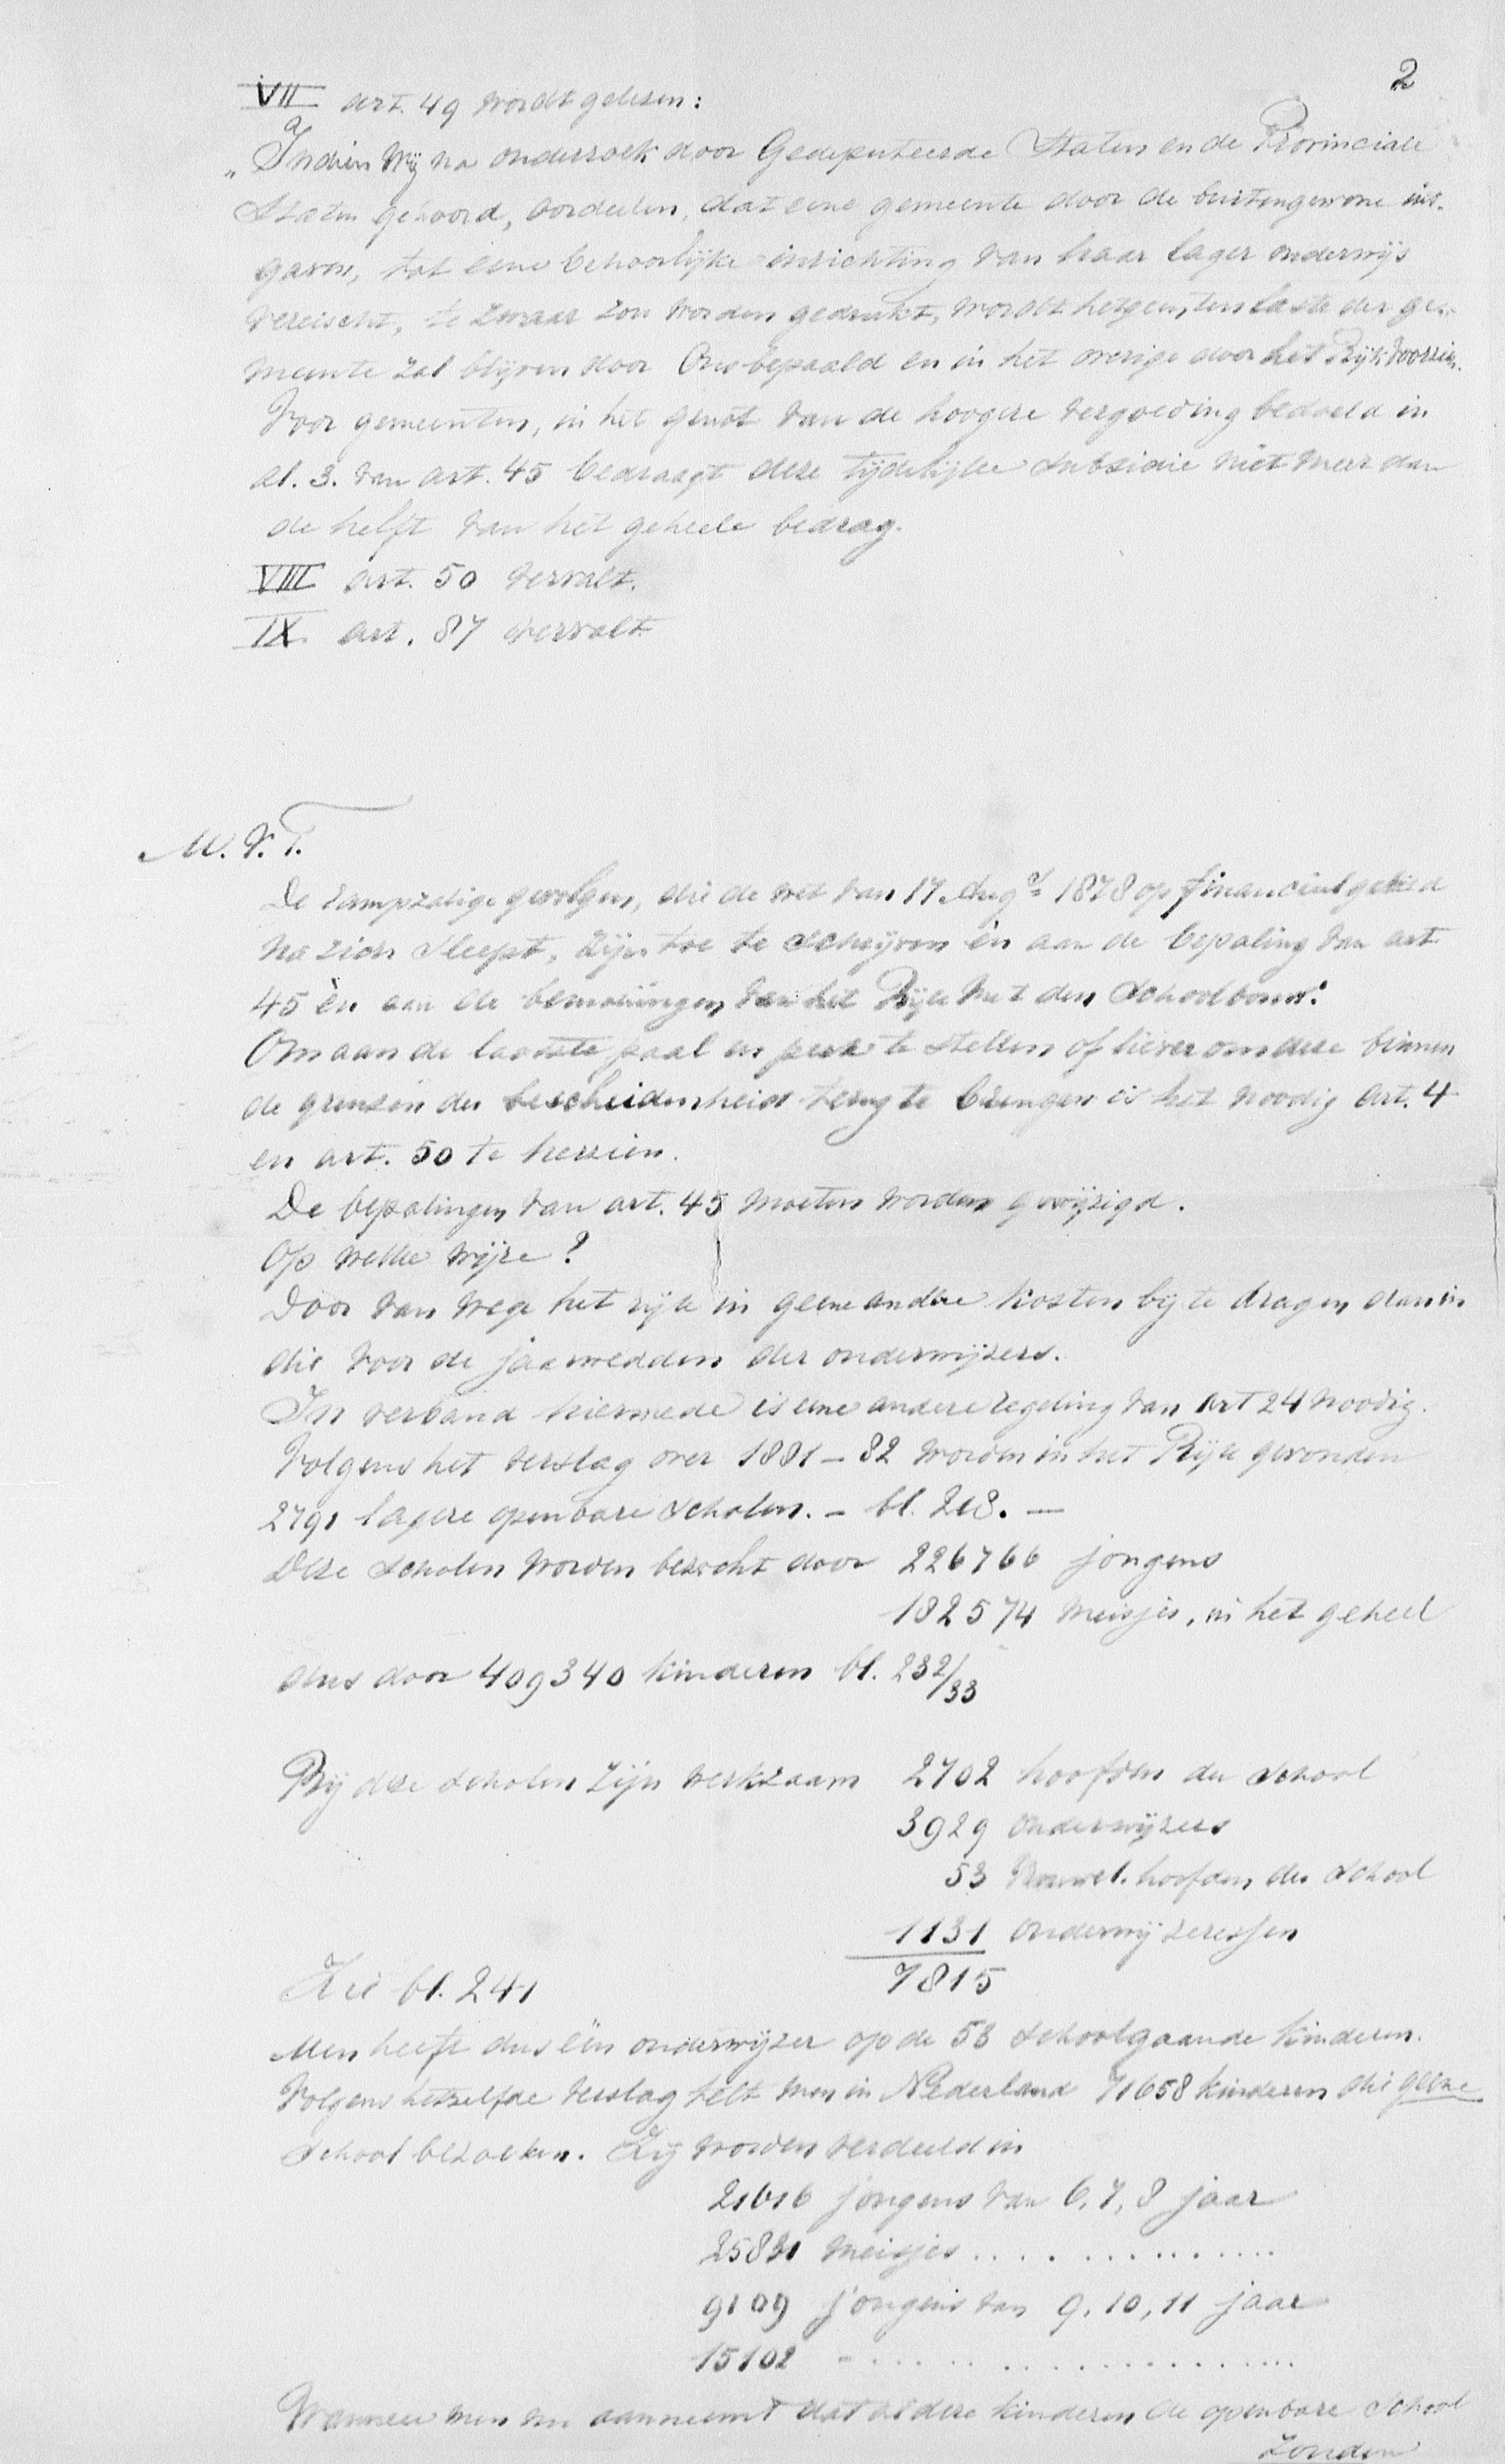 2
VII art. 49 wordt gelezen:
„Indien Wij na onderzoek door Gedeputeerde Staten en de Provinciale
Staten gehoord, oordeelen, dat eene gemeente door de buitengewone uit-
gaven, tot eene behoorlijke inrichting van haar lager onderwijs
vereischt, te zwaar zou worden gedrukt, wordt hetgeen ten laste der ge-
meente zal blijven door Ons bepaald en in het overige door het Rijk voorzien.
Voor gemeenten, in het genot van de hoogere vergoeding bedoeld in
al. 3. van art. 45 bedraagt deze tijdelijke subsidie niet meer dan
de helft van het geheele bedrag.
VIII art. 50 vervalt.
IX. art. 87 vervalt.
M. v. T.
De rampzalige gevolgen, die de wet van 17 Augs 1878 op financieel gebied
na zich sleept, zijn toe te schrijven èn aan de bepaling van art
45 èn aan de bemoeiingen van het Rijk met den schoolbouw.
Om aan de laatste paal en perk te stellen of liever om deze binnen
de grenzen der bescheidenheid terug te brengen is het noodig art. 4
en art. 50 te herzien.
De bepalingen van art. 45 moeten worden gewijzigd.
Op welke wijze?
Door van wege het rijk in geene andere kosten bij te dragen dan in
die voor de jaarwedden der onderwijzers.
In verband hiermede is eene andere regeling van art 24 noodig.
Volgens het verslag over 1881-82 worden in het Rijk gevonden
2791 lagere openbare scholen. - bl. 218. -
Deze scholen worden bezocht door 226766 jongens
182574 meisjes, in het geheel
dus door 409340 kinderen bl. 232/33
Bij deze scholen zijn werkzaam 2702 hoofden der school
3929 onderwijzers
53 vrouwel. hoofden der school
1131 onderwijzeressen
7815
Zie bl. 241
Men heeft dus één onderwijzer op de 53 schoolgaande kinderen.
Volgens hetzelfde verslag telt men in Nederland 71658 kinderen die geene
school bezoeken. Zij worden verdeeld in
21616 jongens van 6, 7, 8 jaar
25831 meisjes ...............
9109 jongens van 9, 10, 11 jaar
15102 - ....................
Wanneer men nu aanneemt dat al deze kinderen de openbare school
zouden